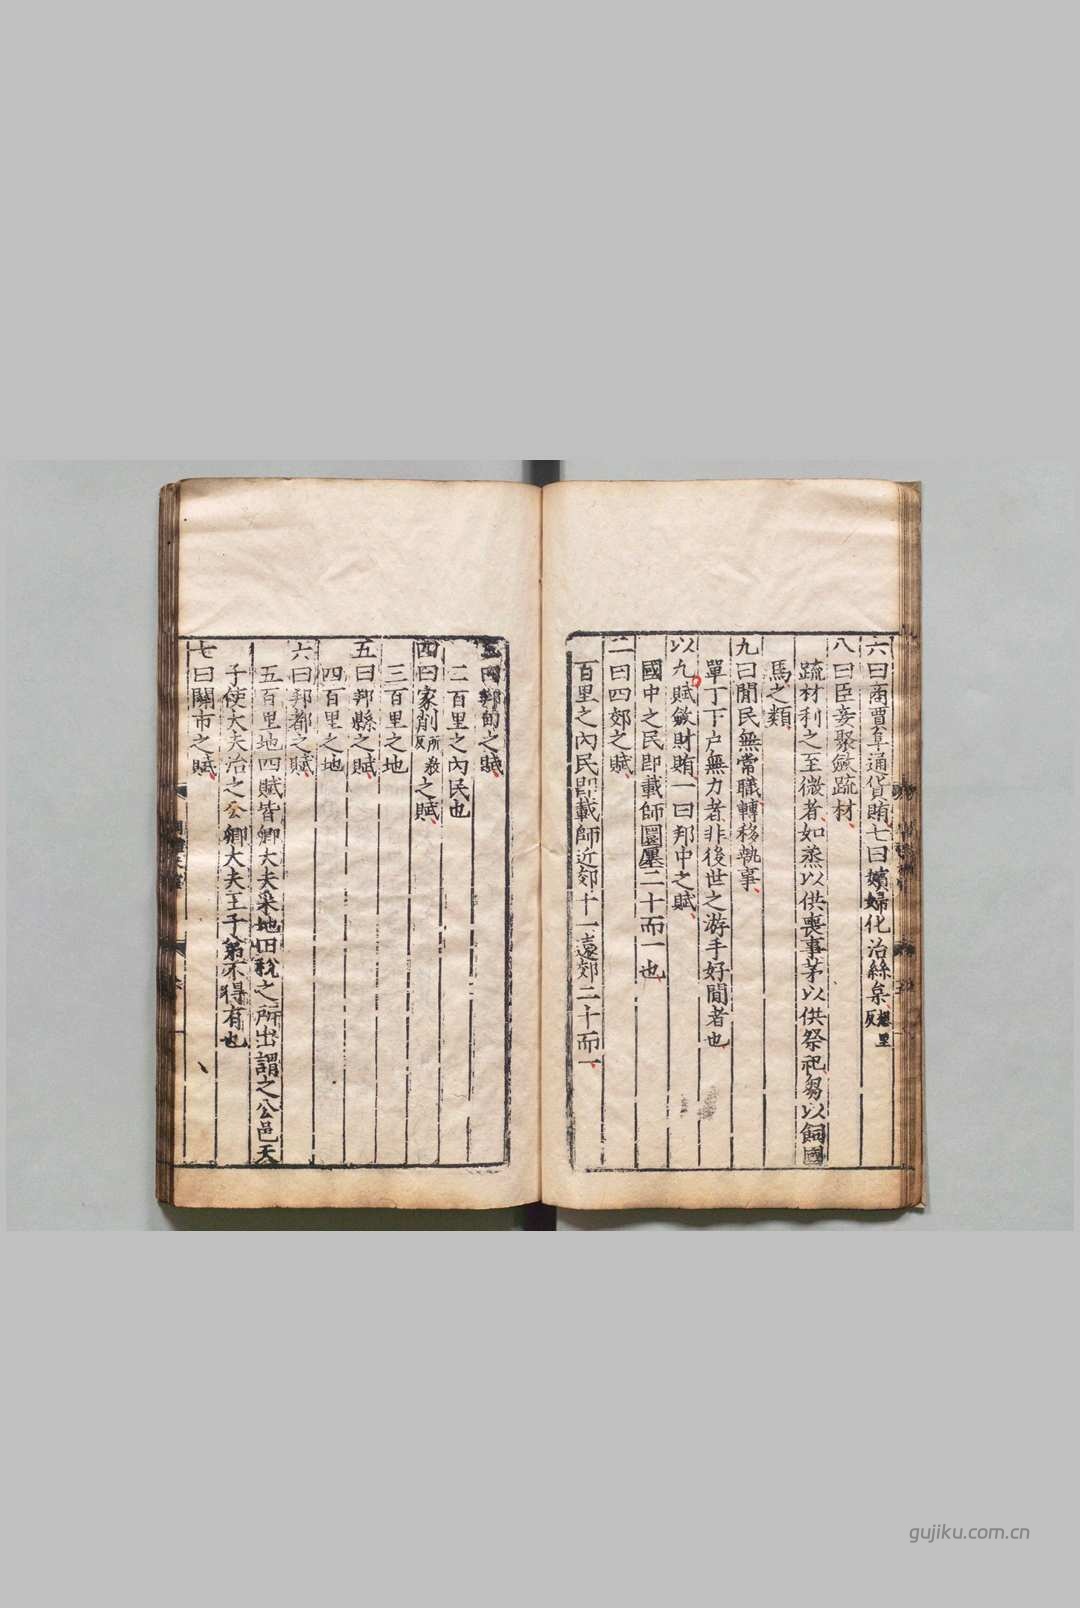 六曰商賈阜通貨賄七曰嬪婦化治絲枲想里反
八曰臣妾聚斂疏材
疏材利之至微者如蒸以供喪事茅以供祭祀芻以飼國
馬之類
九曰閒民無常職轉移執事
單丁下戶無力者非後世之游手好閒者也
以九賦斂財賄一曰邦中之賦
國中之民即載師園廛二十而一也
二曰四郊之賦
百里之內民即載師近郊十一遠郊二十而一
三曰邦甸之賦
二百里之內民也
四曰家削所教反之賦
三百里之地
五曰邦縣之賦
四百里之地
六曰邦都之賦
五百里地四賦皆卿大夫采地田稅之所出謂之公邑天
子使大夫治之公卿大夫王子弟不得有也
七曰關市之賦
gujiku.com.cn